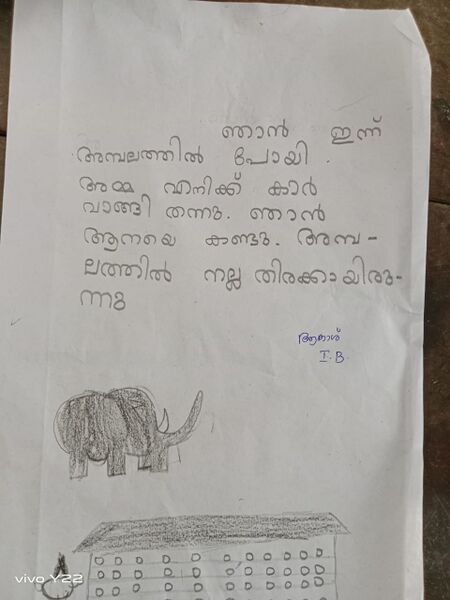 ഞാൻ ഇന്ന്
അമ്പലത്തിൽ പോയി .
അമ്മ എനിക്ക് കാർ
വാങ്ങി തന്നു. ഞാൻ
ആനയെ കണ്ടു. അമ്പ -
ലത്തിൽ നല്ല തിരക്കായിരു-
ന്നു
ആകാശ്
I. B.
vivo Y22